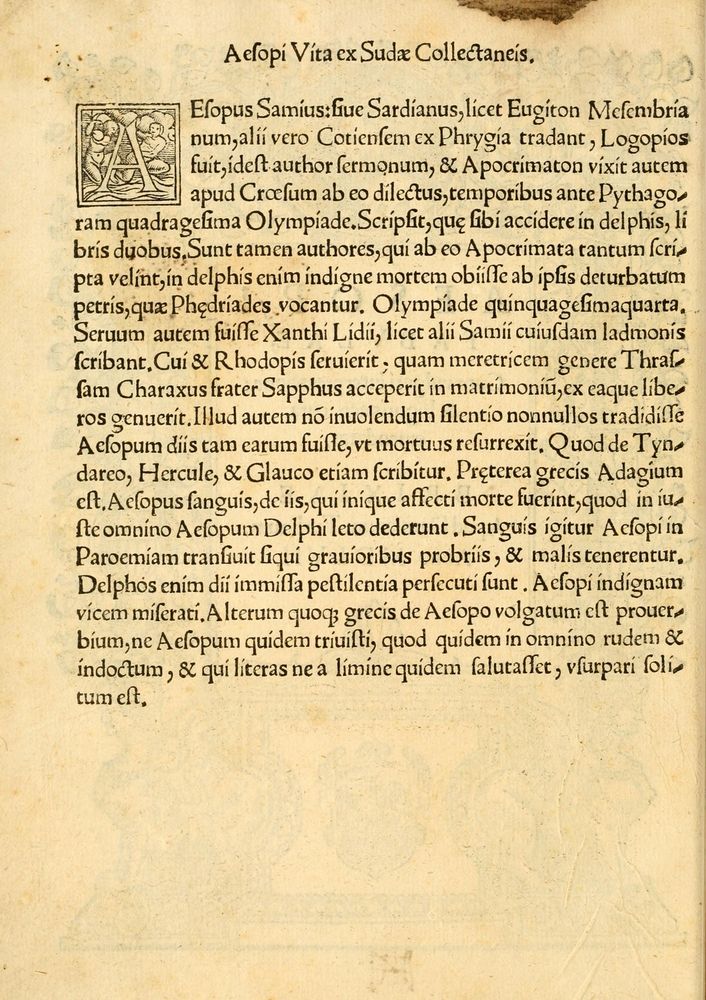 Aesopi Vita ex Sudæ Collectaneis.
AEsopus Samius: siue Sardianus, licet Eugiton Mesembria
num, alii vero Cotiensem ex Phrygia tradant, Logopios
fuit, idest author sermonum, & Apocrimaton vixit autem
apud Crœsum ab eo dilectus, temporibus ante Pythago-
ram quadragesima Olympiade. Scripsit, quę sibi accidere in delphis, li
bris duobus. Sunt tamen authores, qui ab eo Apocrimata tantum scri-
pta velint, in delphis enim indigne mortem obiisse ab ipsis deturbatum
petris, quæ Phędriades vocantur. Olympiade quinquagesimaquarta.
Seruum autem fuisse Xanthi Lidii, licet alii Samii cuiusdam Iadmonis
scribant. Cui & Rhodopis seruierit; quam meretricem genere Thras-
sam Charaxus frater Sapphus acceperit in matrimoniũ, ex eaque libe-
ros genuerit. Illud autem nõ inuolendum silentio nonnullos tradidisse
Aesopum diis tam earum fuisse, vt mortuus resurrexit. Quod de Tyn-
dareo, Hercule, & Glauco etiam scribitur. Pręterea grecis Adagium
est. Aesopus sanguis, de iis, qui inique affecti morte fuerint, quod in iu-
ste omnino Aesopum Delphi leto dederunt. Sanguis igitur Aesopi in
Paroemiam transiuit siqui grauioribus probriis, & malis tenerentur.
Delphos enim dii immissa pestilentia persecuti sunt. Aesopi indignam
vicem miserati. Alterum quoqꝫ grecis de Aesopo volgatum est prouer-
bium, ne Aesopum quidem triuisti, quod quidem in omnino rudem &
indoctum, & qui literas ne a limine quidem salutasset, vsurpari soli-
tum est.